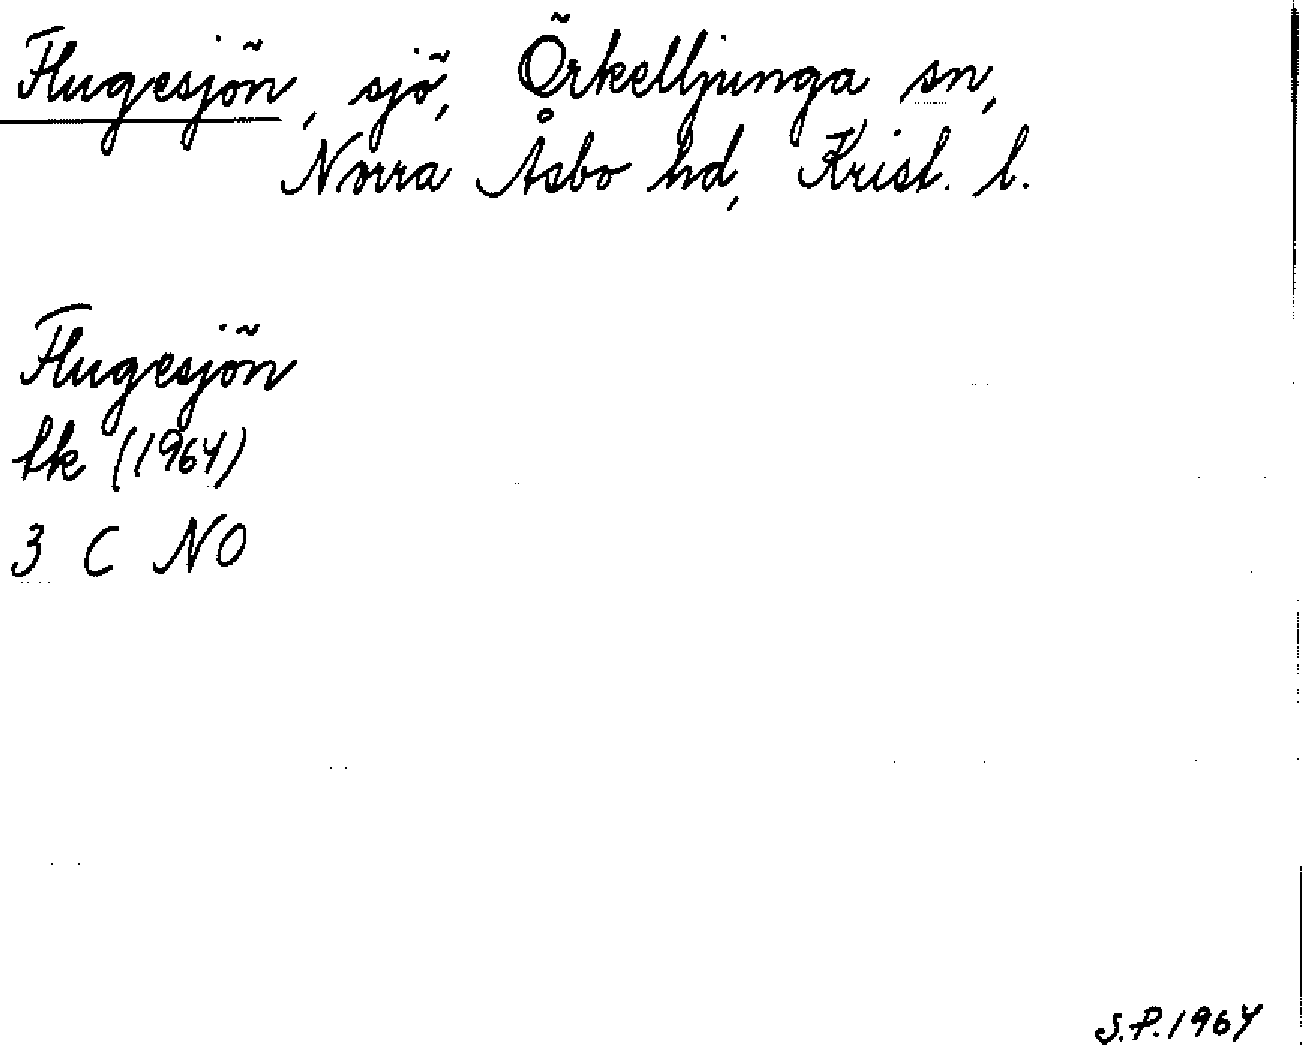 Flugesjön, sjö, Örkelljunga sn,
Norra Åsbo hd, Krist. l.
Flugesjön
tk (1964)
3 C NO
S.P. 1964